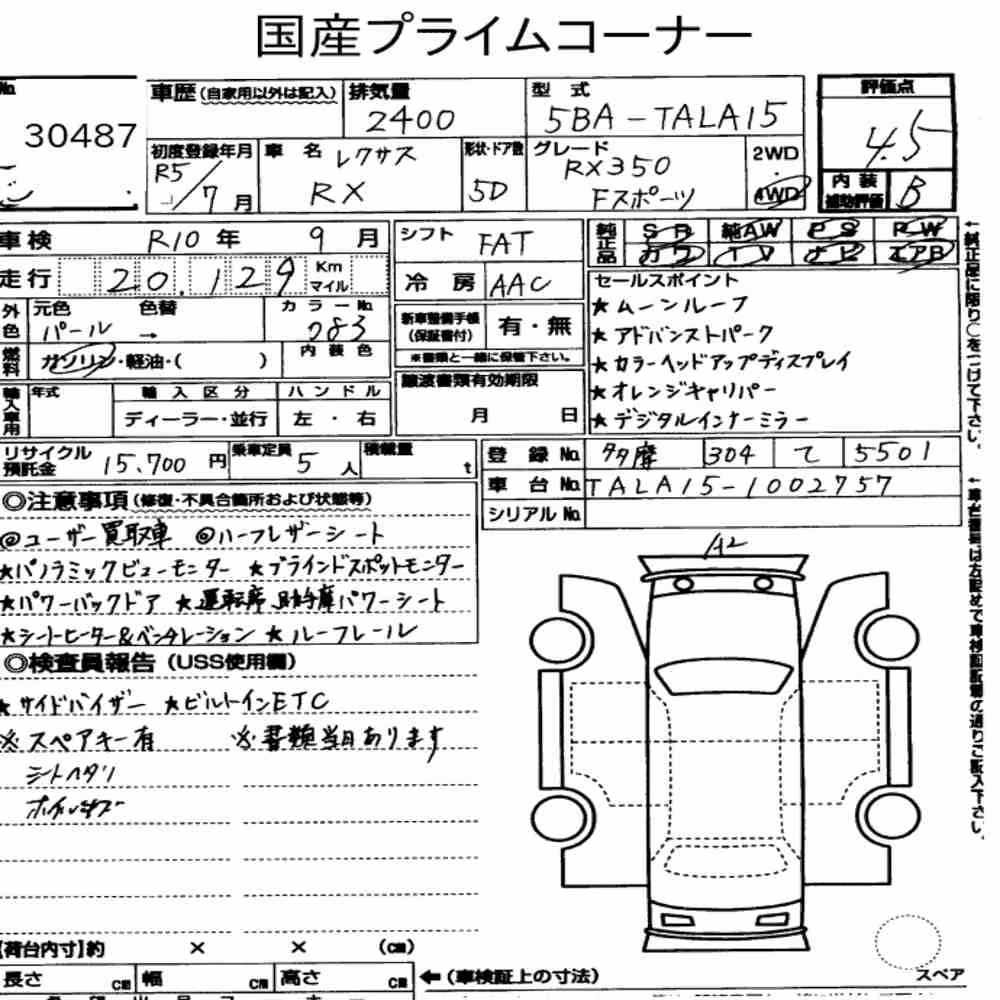 国産プライムコーナー
No
30487
車歴(自家用以外は記入)
排気量
2400
型式
5BA-TALA15
評価点
4.5
初度登録年月
R5/7月
車名 レクサス
RX
形状・ドア数
5D
グレード
RX350
Fスポーツ
2WD
・
4WD
内装
補助評価
B
車検 R10年 9月
シフト FAT
純正品
SR 純AW PS PW
カワ TV ナビ エアB
走行 20,129 Km
マイル
冷房 AAC
外色
元色 色替 カラーNo
パール → 083
新車整備手帳
(保証書付)
有・無
※書類と一緒に保管下さい。
燃料
ガソリン・軽油・( )
内装色
セールスポイント
★ムーンルーフ
★アドバンストパーク
★カラーヘッドアップディスプレイ
★オレンジキャリパー
★デジタルインナーミラー
輸入車用
年式
輸入区分
ハンドル
ディーラー・並行
左・右
譲渡書類有効期限
月 日
リサイクル
預託金
15,700円
乗車定員
5人
積載量
t
登録No. 多摩 304 て 5501
車台No. TALA15-1002757
シリアルNo.
◎注意事項(修復・不具合箇所および状態等)
◎ユーザー買取車 ◎ハーフレザーシート
★パノラミックビューモニター ★ブラインドスポットモニター
★パワーバックドア ★運転席 助手席パワーシート
★シートヒーター&ベンチレーション ★ルーフレール
◎検査員報告(USS使用欄)
★サイドバイザー ★ビルトインETC
※スペアキー有 ※書類当日あります
シートヘタリ
ホイールキズ
A2
【荷台内寸】約 × × (cm)
長さ cm 幅 cm 高さ cm ←(車検証上の寸法)
スペア
←純正品に限り○をつけて下さい。